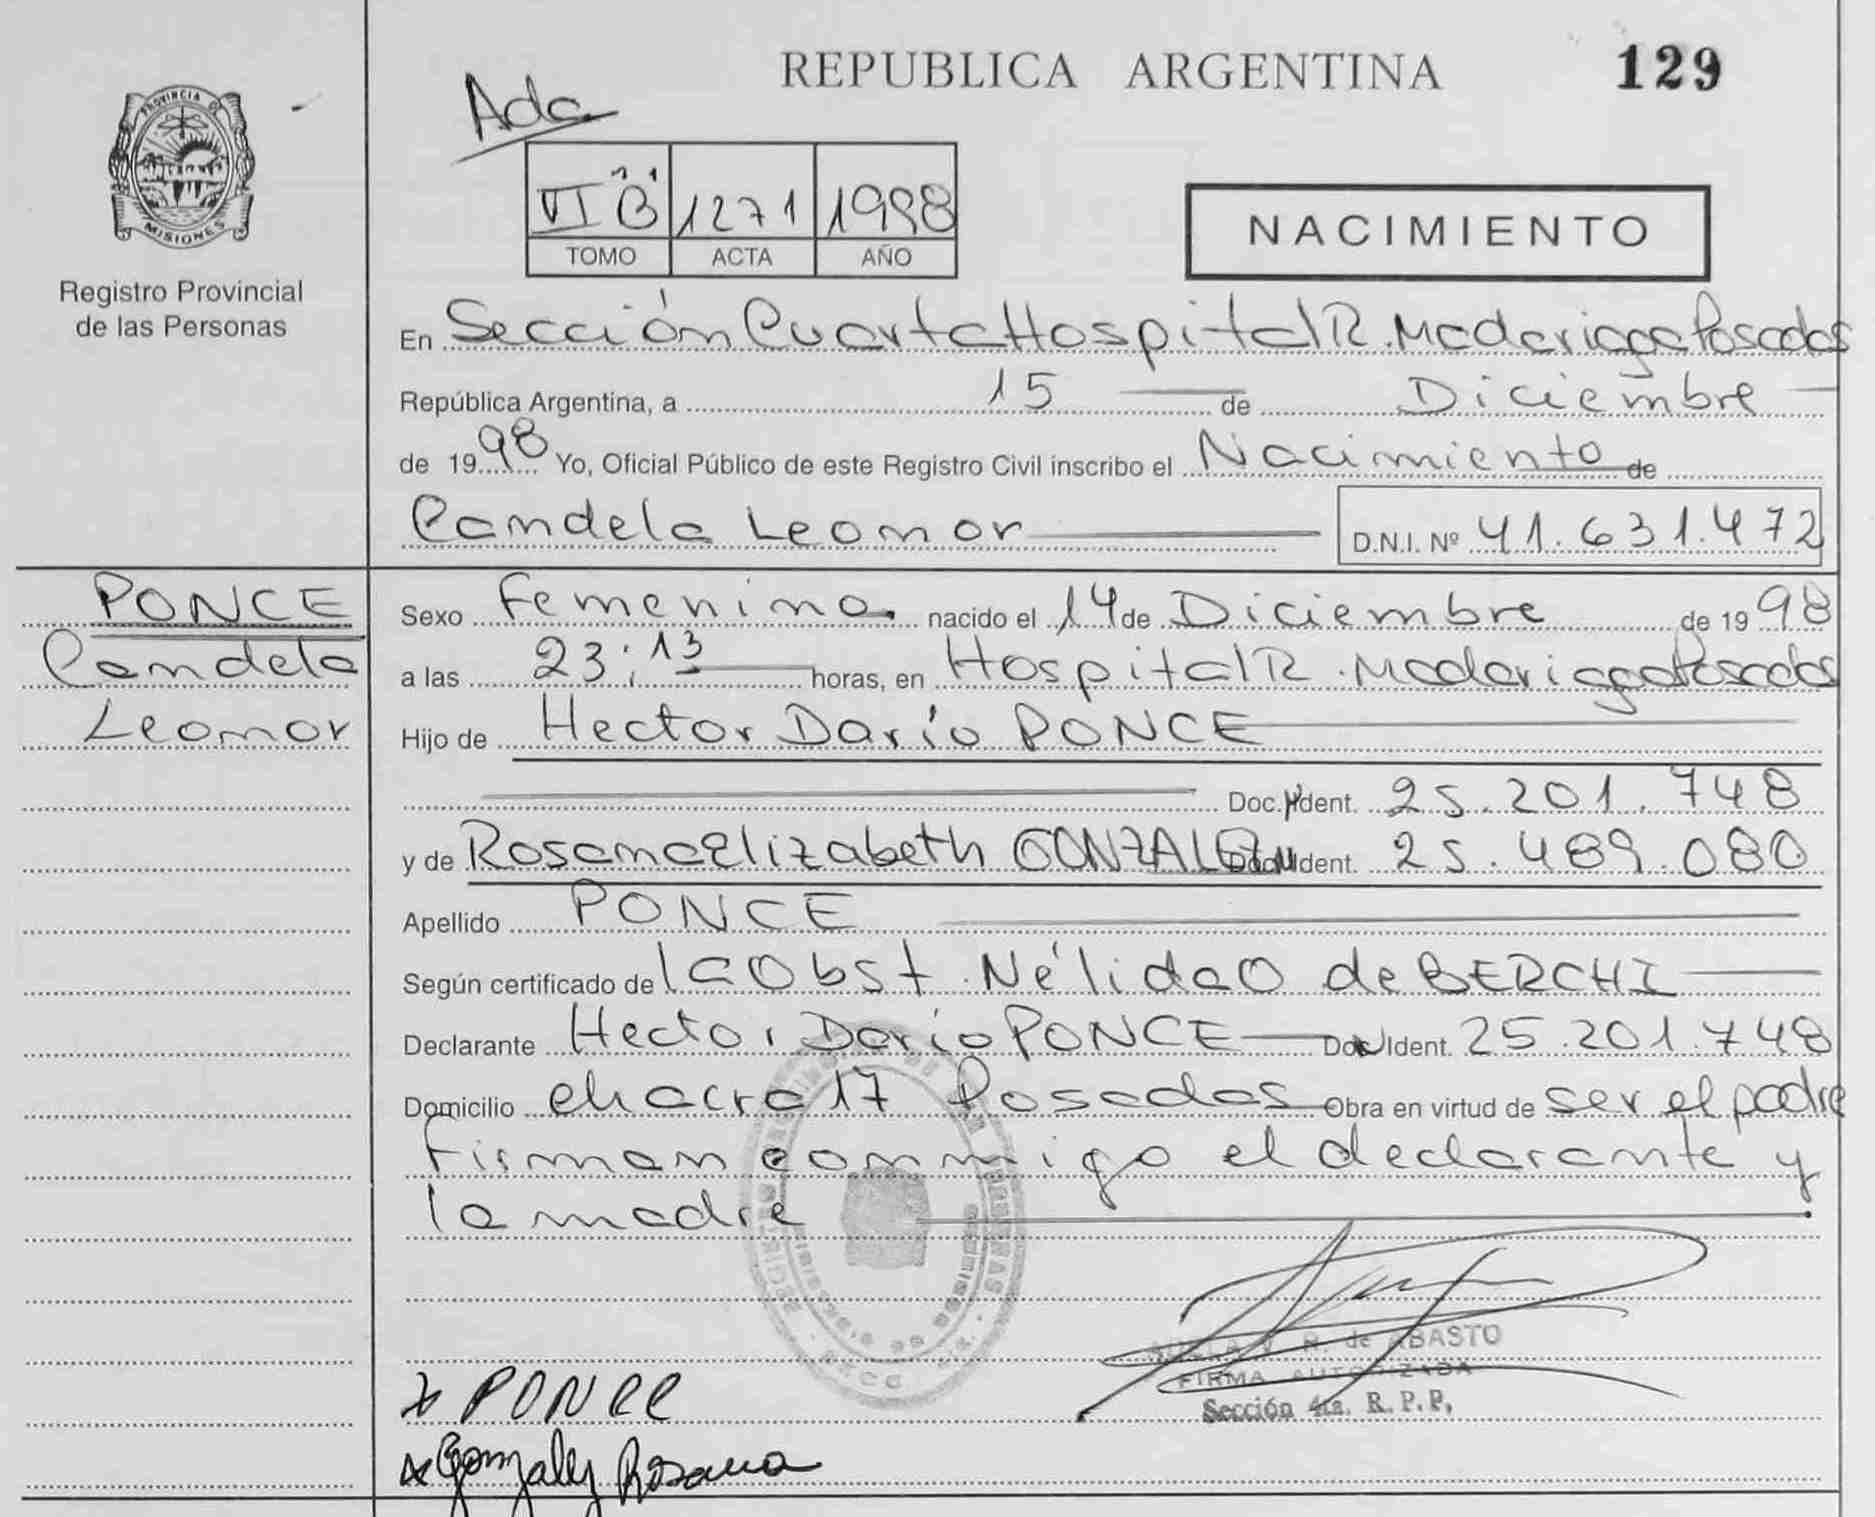 REPUBLICA ARGENTINA
129
PROVINCIA DE
MISIONES
Registro Provincial
de las Personas
Ada
VI B 1271 1998
TOMO ACTA AÑO
NACIMIENTO
En Sección Cuarta Hospital R. Madariaga Posadas
República Argentina, a 15 de Diciembre
de 1998 Yo, Oficial Público de este Registro Civil inscribo el Nacimiento de
Candela Leonor D.N.I. Nº 41.631.472
PONCE
Candela
Leonor
Sexo Femenino nacido el 14 de Diciembre de 1998
a las 23:13 horas, en Hospital R. Madariaga Posadas
Hijo de Hector Darío PONCE
Doc. Ident. 25.201.748
y de Rosana Elizabeth GONZALEZ Doc. Ident. 25.489.080
Apellido PONCE
Según certificado de la Obst. Nélida O de BERCHI
Declarante Hector Darío PONCE Doc Ident. 25.201.748
Domicilio chacra 17 Posadas Obra en virtud de ser el padre
Firman conmigo el declarante y
la madre
R. de ABASTO
FIRMA AUTORIZADA
Sección 4ta. R.P.P.
x PONCE
x Gonzalez Rosana